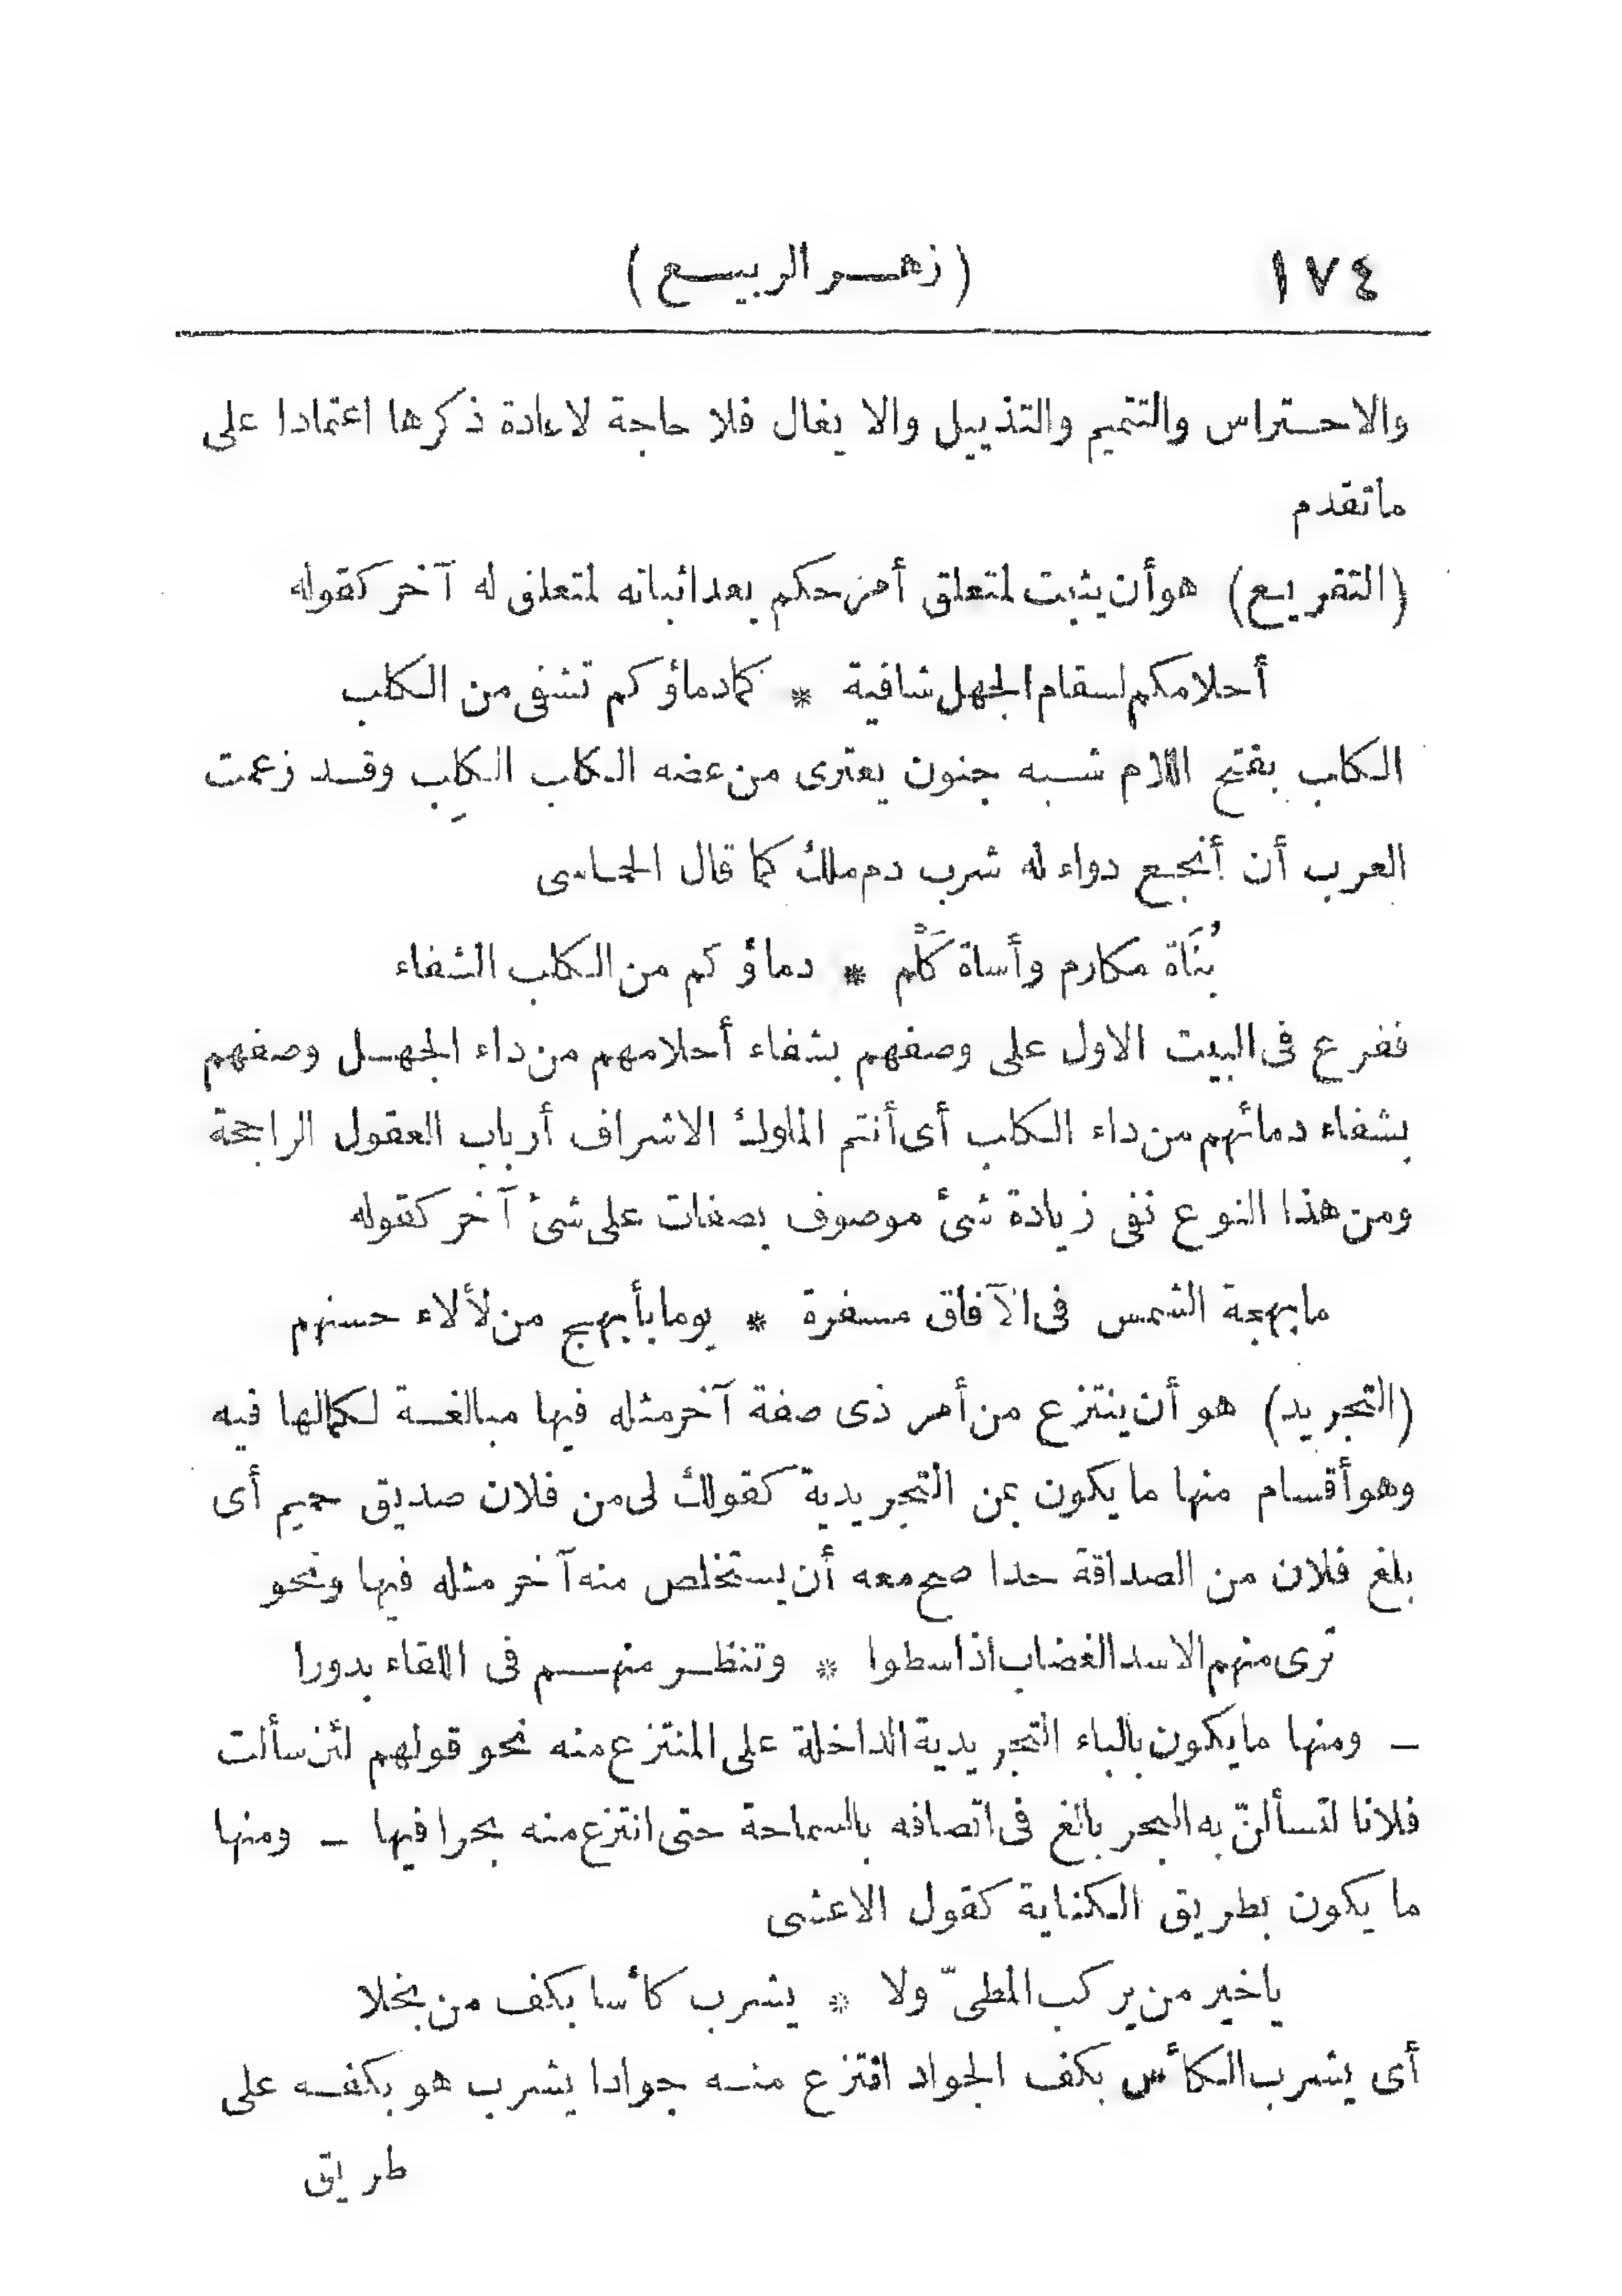 ١٧٤ (زهر الربيع)
والاحتراس والتتميم والتذييل والايغال فلا حاجة لاعادة ذكرها اعتمادا على
ماتقدم
(التفريع) هوأن يثبت لمتعلق أمرحكم بعداثباته لمتعلق له آخر كقوله
أحلامكم لسقام الجهل شافية * كمادماؤكم تشفى من الكلب
الكلب بفتح اللام شبه جنون يعترى من عضه الكلب الكلِب وقد زعمت
العرب أن أنجع دواء له شرب دم ملك كما قال الحماسى
بُنَاة مكارم وأساة كَلْم * دماؤكم من الكلب الشفاء
ففرع فى البيت الاول على وصفهم بشفاء أحلامهم من داء الجهل وصفهم
بشفاء دمائهم من داء الكلب أى أنتم الملوك الاشراف أرباب العقول الراجحة
ومن هذا النوع نفى زيادة شئ موصوف بصفات على شئ آخر كقوله
مابهجة الشمس فى الآفاق مسفرة * يوما بأبهج من لألاء حسنهم
(التجريد) هو أن ينتزع من أمر ذى صفة آخرمثله فيها مبالغة لكمالها فيه
وهوأقسام منها ما يكون بمن التجريدية كقولك لى من فلان صديق حميم أى
بلغ فلان من الصداقة حدا صح معه أن يستخلص منه آخر مثله فيها ونحو
ترى منهم الاسد الغضاب اذا سطوا * وتنظر منهم فى اللقاء بدورا
ـ ومنها ما يكون بالباء التجريدية الداخلة على المنتزع منه نحو قولهم لئن سألت
فلانا لتسألنّ به البحر بالغ فى اتصافه بالسماحة حتى انتزع منه بحرا فيها ـ ومنها
ما يكون بطريق الكناية كقول الاعشى
ياخير من يركب المطىّ ولا * يشرب كأسا بكف من بخلا
أى يشرب الكأس بكف الجواد انتزع منه جوادا يشرب هو بكفه على
طريق